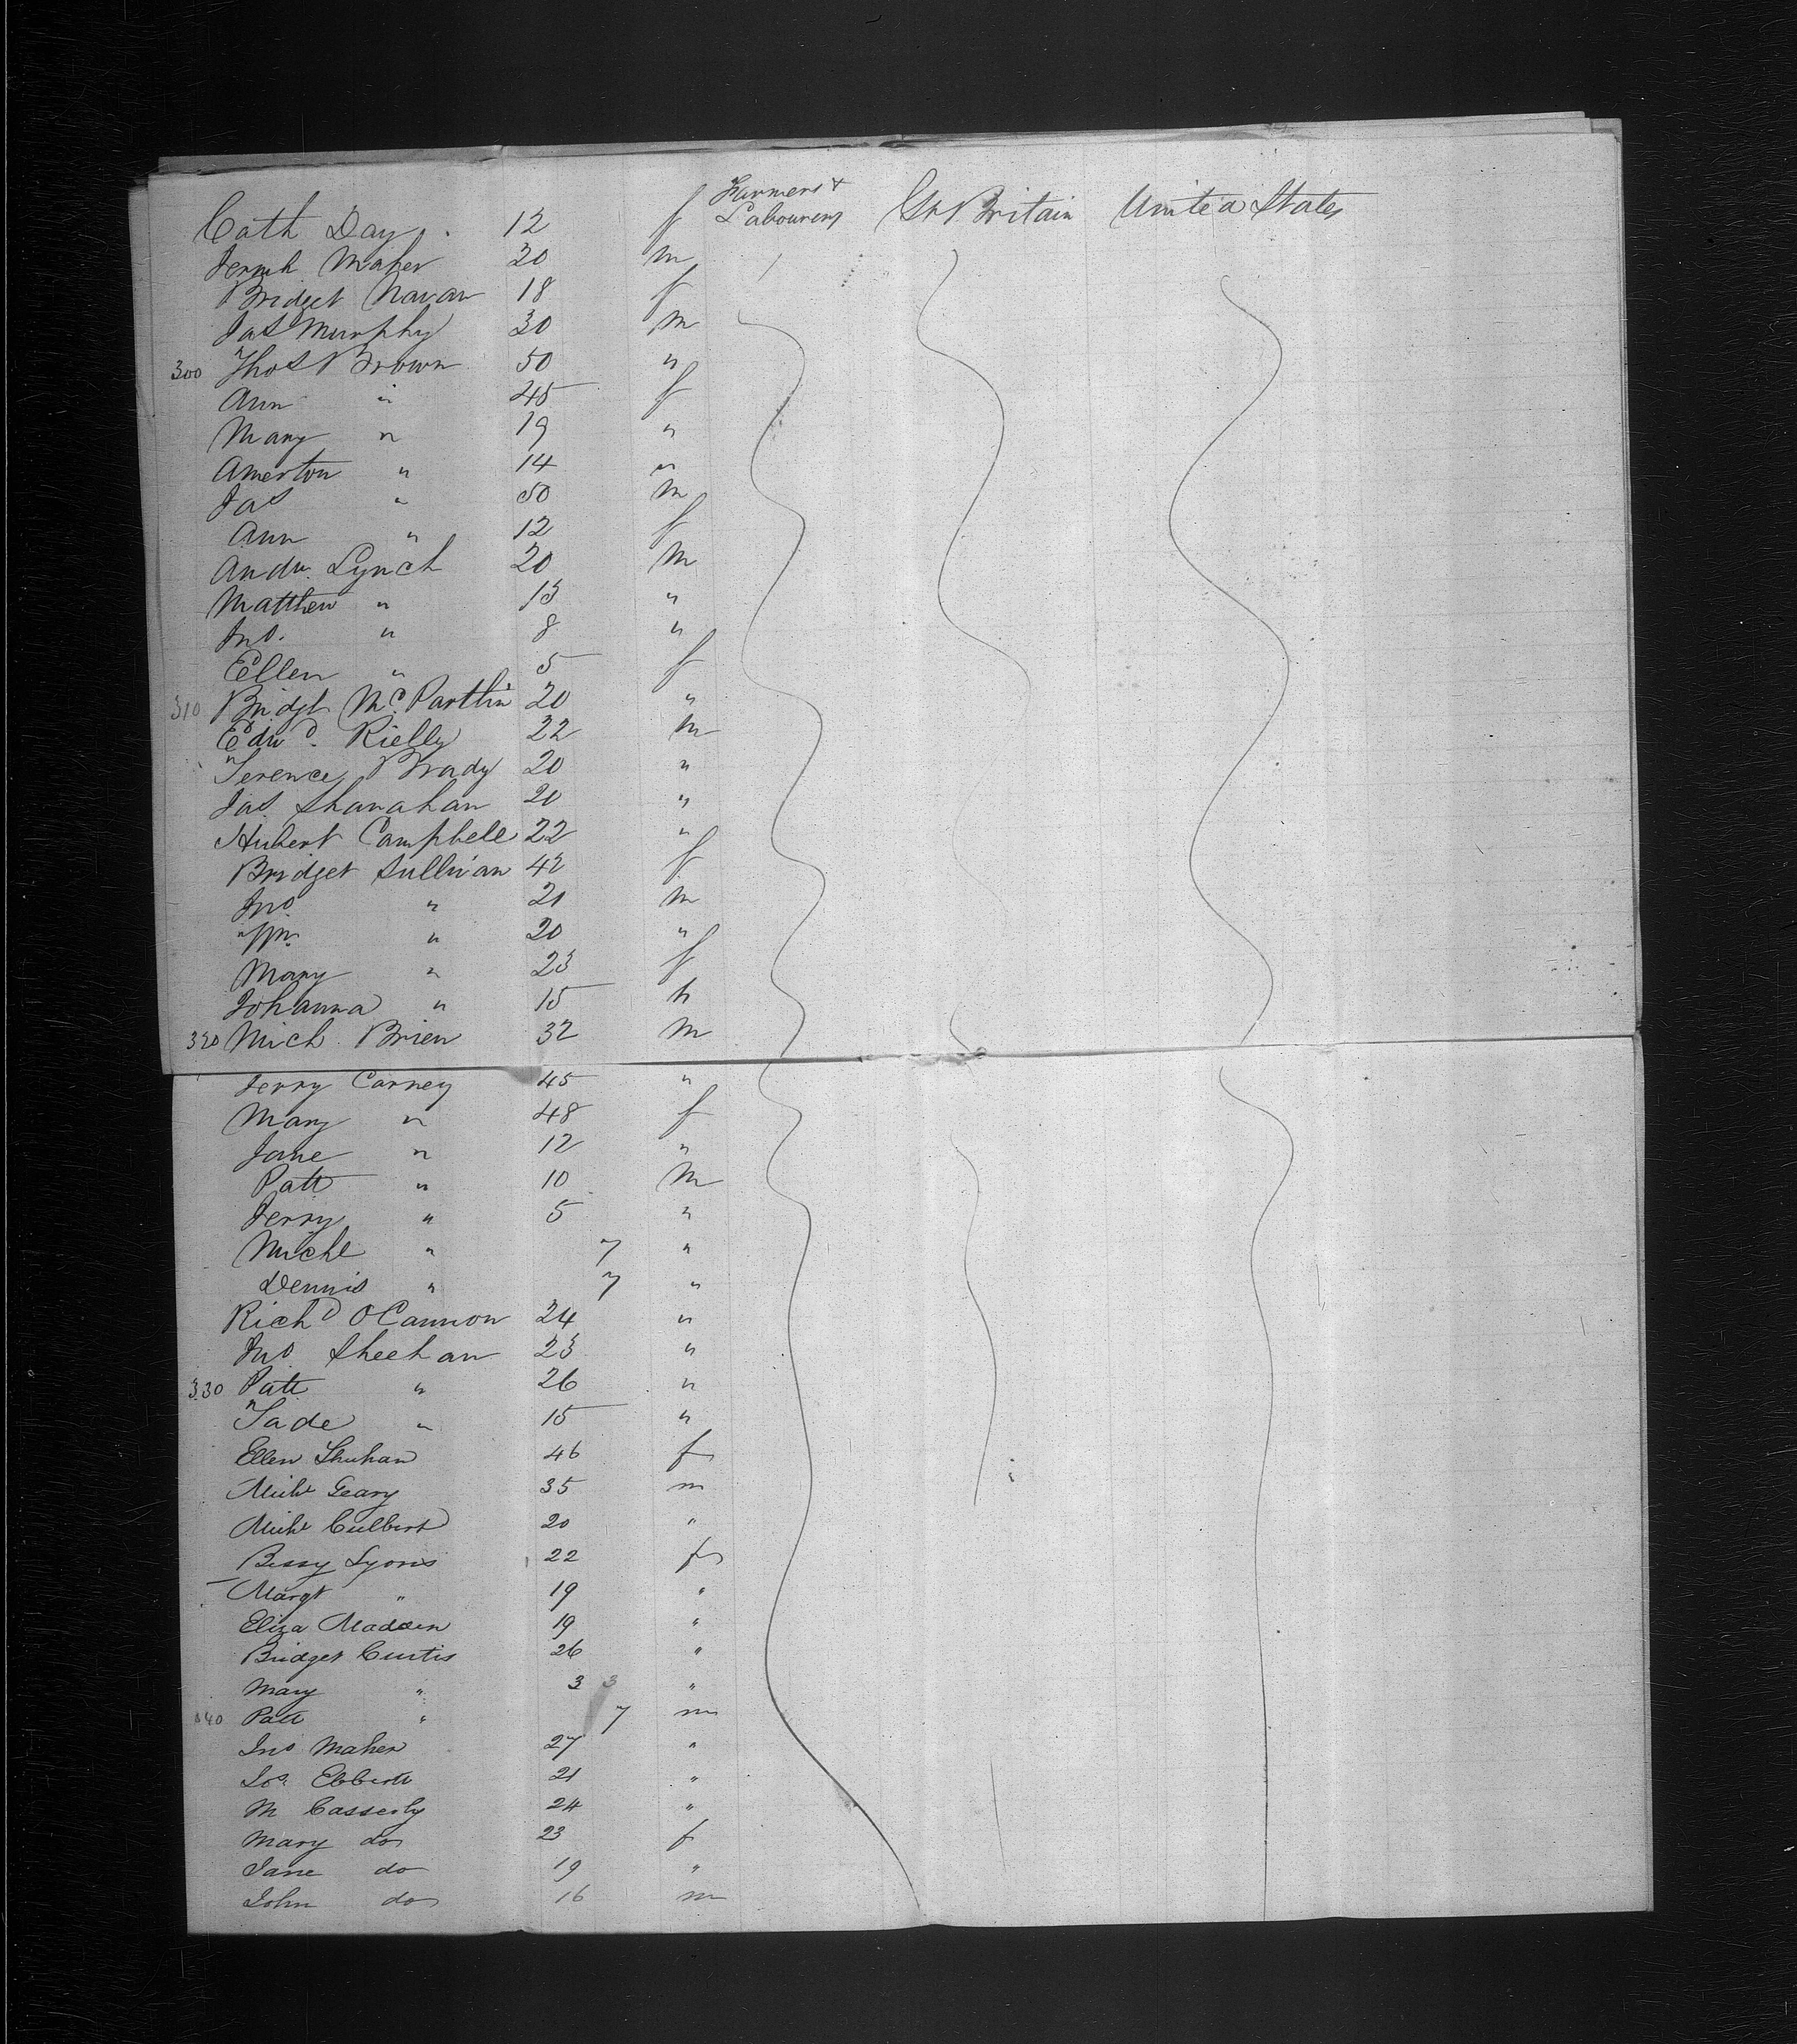 Cath Day. 12 f Farmers & Labourers Gt Britain United States
Jermh Maher 20 m
Bridget Navan 18 f
Jas Murphy 30 m
300 Thos Brown 50 "
Ann " 45 f
Mary " 19 "
Amerton " 14 "
Jas " 50 m
Ann " 12 f
Andw. Lynch 20 m
Matthew " 13 "
Jno. " 8 "
Ellen " 5 f
310 Bridgt McPartlin 20 "
Edwd. Rielly 22 m
Terence Brady 20 "
Jas. Shanahan 20 "
Hubert Campbell 22 "
Bridget Sullivan 42 f
Jno " 21 m
Wm " 20 "
Mary " 23 f
Johanna " 15 "
320 Mich. Brien 32 m
Jerry Carney 45 "
Mary " 48 f
Jane " 12 "
Patt " 10 m
Jerry " 5 "
Michl " 7 "
Dennis " 7 "
Richd O Cannon 24 "
Jno Sheehan 23 "
330 Patt " 26 "
Tade " 15 "
Ellen Shuhan 46 f
Michl Geary 35 m
Michl Culbert 20 "
Bessy Lyons 22 f
Margt " 19 "
Eliza Madden 19 "
Bridget Curtis 26 "
Mary " 3 3 "
340 Patt " 7 m
Jno Maher 27 "
Jos Ebbertt 21 "
M Casserly 24 "
Mary do 23 f
Jane do 19 "
John do 16 m